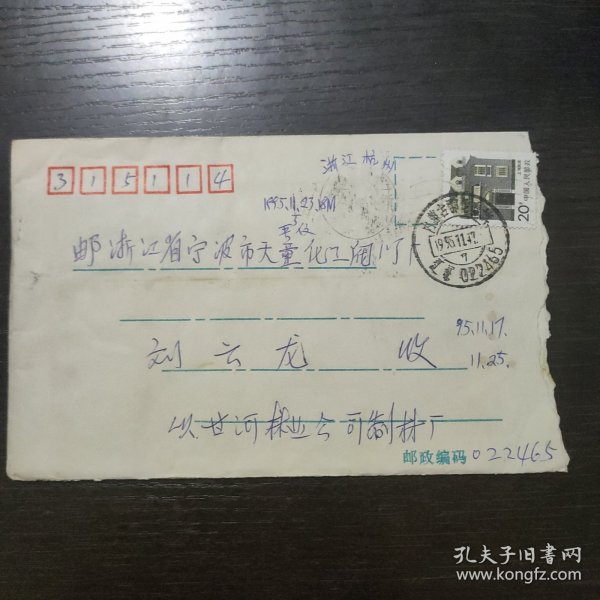 315114
浙江杭州
1995.11.23.18M
20分
中国人民邮政
1995.11.17.
7
022465
邮 浙江省宁波市大童化工阀门厂
95.11.17.
11.25.
刘云龙 收
甘河林业公司制材厂
邮政编码 022465
孔夫子旧书网
www.kongfz.com